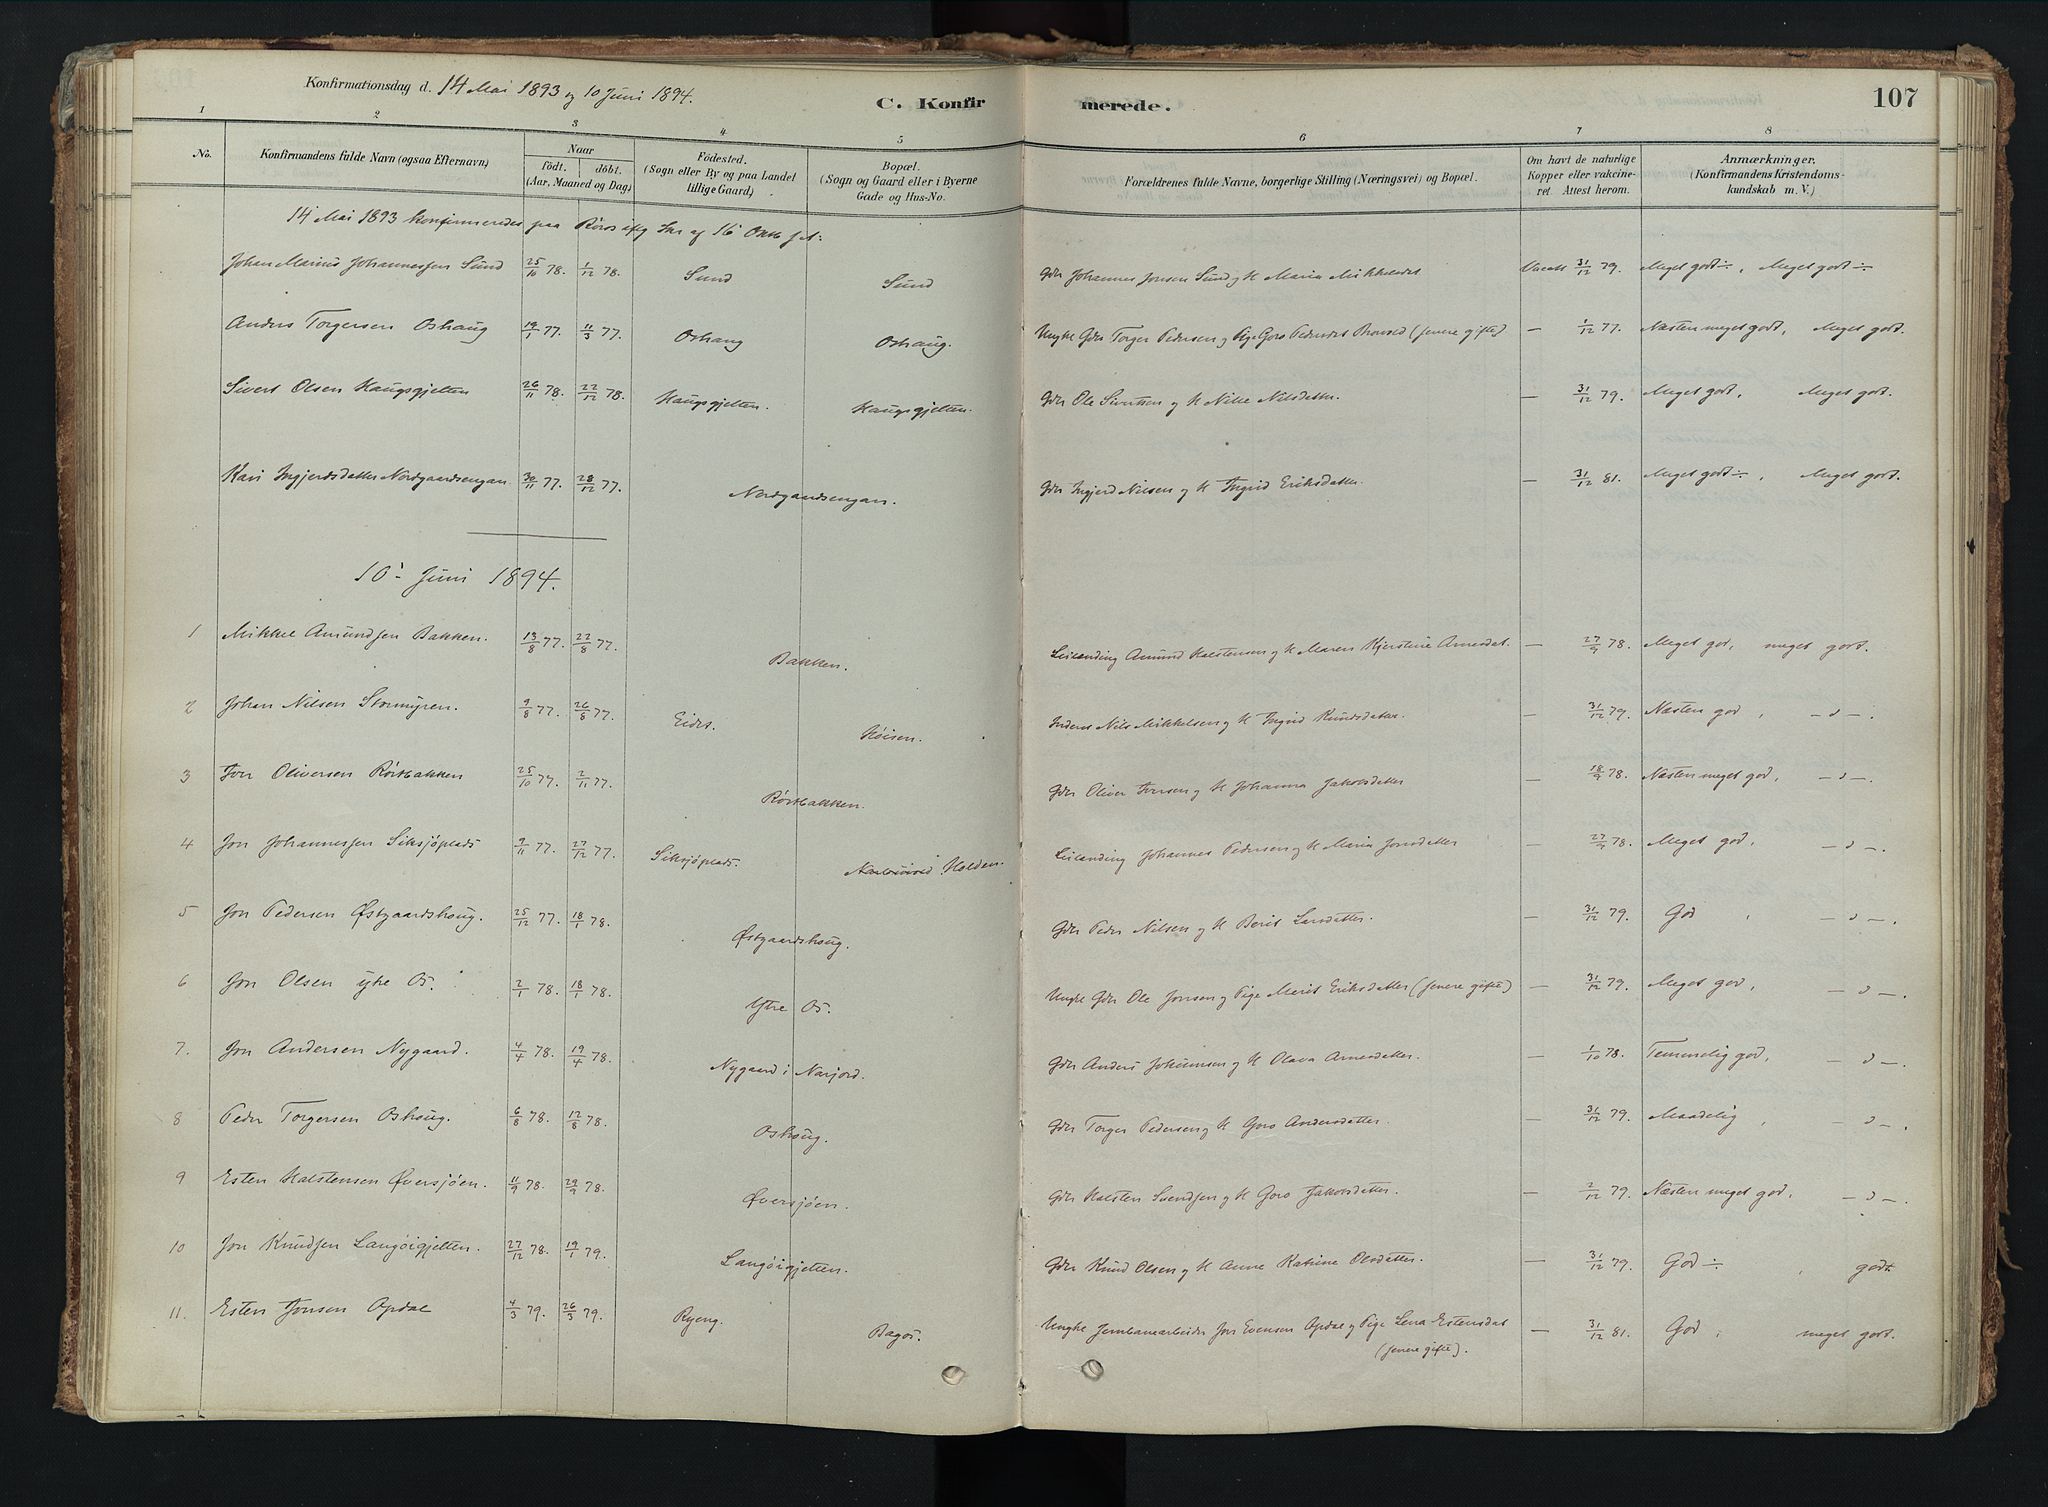 Konfirmationsdag d. 14 Mai 1893 og 10 Juni 1894.
C. Konfirmerede.
107
1 2 3 4 5 6 7 8
No.
Konfirmandens fulde Navn (ogsaa Efternavn)
Naar
födt. döbt.
(Aar, Maaned og Dag)
Födested.
(Sogn eller By og paa Landet
tillige Gaard)
Bopæl.
(Sogn og Gaard eller i Byerne
Gade og Hus-No.
Forældrenes fulde Navne, borgerlige Stilling (Næringsvei) og Bopæl.
Om havt de naturlige
Kopper eller vakcine-
ret. Attest herom.
Anmærkninger.
(Konfirmandens Kristendoms-
kundskab m. V.)
14 Mai 1893 konfirmeredes paa Röros iflg Skr af 16 Okt
Johan Marius Johannessen Sund 25/10 78. 1/12 78. Sund Sund Gdr Johannes Jonsen Sund og H Maria Mikkelsdt Vacat 31/12 79. Meget godt ÷, Meget godt ÷
Anders Torgersen Oshaug 19/1 77. 11/3 77. Oshaug Oshaug. Ungke Gdr Torger Pedersen og Pige Goro Pedersdt (senere gifte) — 1/12 77. Næsten meget godt, Meget godt.
Sivert Olsen Haugsgjelten 26/11 78. 22/12 78. Haugsgjelten. Haugsgjelten. Gdr Ole Sivertsen og H Nille Nilsdatter. — 31/12 79. Meget godt, Meget godt.
Kari Ingjerdsdatter Nordgaardsengan 30/11 77. 28/12 77. Nordgaardsengan. Gdr Ingjerd Nilsen og H Ingrid Eriksdatter. — 31/12 81. Meget godt ÷, Meget godt.
10' Juni 1894.
1 Mikkel Amundsen Bakken. 13/8 77. 22/8 77. Bakken. Leilænding Amund Halstensen og H Maren Kjerstine Arnesdat. — 27/9 78. Meget god, meget godt.
2 Johan Nilsen Stormyren. 9/8 77. 26/8 77. Eidet. Höisen. Inderst Nils Mikkelsen og H Ingrid Knudsdatter. — 31/12 79. Næsten god, — " —.
3 Iver Oliversen Röstbakken 25/10 77. 2/11 77. Röstbakken. Gdr Oliver Iversen og H Johanna Jakobsdatter — 18/9 78. Næsten meget god, — " —.
4 Jon Johannessen Siksjöplads 9/11 77. 27/12 77. Siksjöplads. Holden. Leilænding Johannes Pedersen og H Maria Jonsdatter — 27/9 78. Meget god, — " —.
5 Jon Pedersen Østgaardshoug. 25/12 77. 18/1 78. Østgaardshoug. Gdr Peder Nilsen og H Berit Larsdatter. — 31/12 79. God, — " —.
6 Jon Olsen ytre Os. 2/1 78. 18/1 78. Ytre Os. Ungke Gdr Ole Jonsen og Pige Merit Eriksdatter (senere gifte) — 31/12 79. Meget god, — " —.
7. Jon Andersen Nygaard. 4/4 78. 19/4 78. Nygaard i Narjord. Gdr Anders Johannsen og H Olava Arnesdatter. — 1/10 78. Temmelig god, — " —
8 Peder Torgersen Oshoug. 6/8 78. 12/8 78. Oshoug. Gdr Torger Pedersen og H Goro Andersdatter. — 31/12 79. Maadelig, — " —.
9 Esten Halstensen Øversjöen. 11/9 78. 29/9 78. Øversjöen. Gdr Halsten Svendsen og H Goro Jakobsdatter. — 2/12 79. Næsten meget god. — " —
10 Jon Knudsen Langöigjelten. 27/12 78. 19/1 79. Langöigjelten. Gdr Knud Olsen og H Anne Katrine Olsdatter. — 31/12 79. God ÷, godt.
11. Esten Jonsen Opdal 4/3 79. 26/3 79. Ryeng. Ungke Jernbanearbeider Jon Evensen Opdal og Pige Lena Estensdat — 31/12 81. God, meget godt.
(senere gifte).